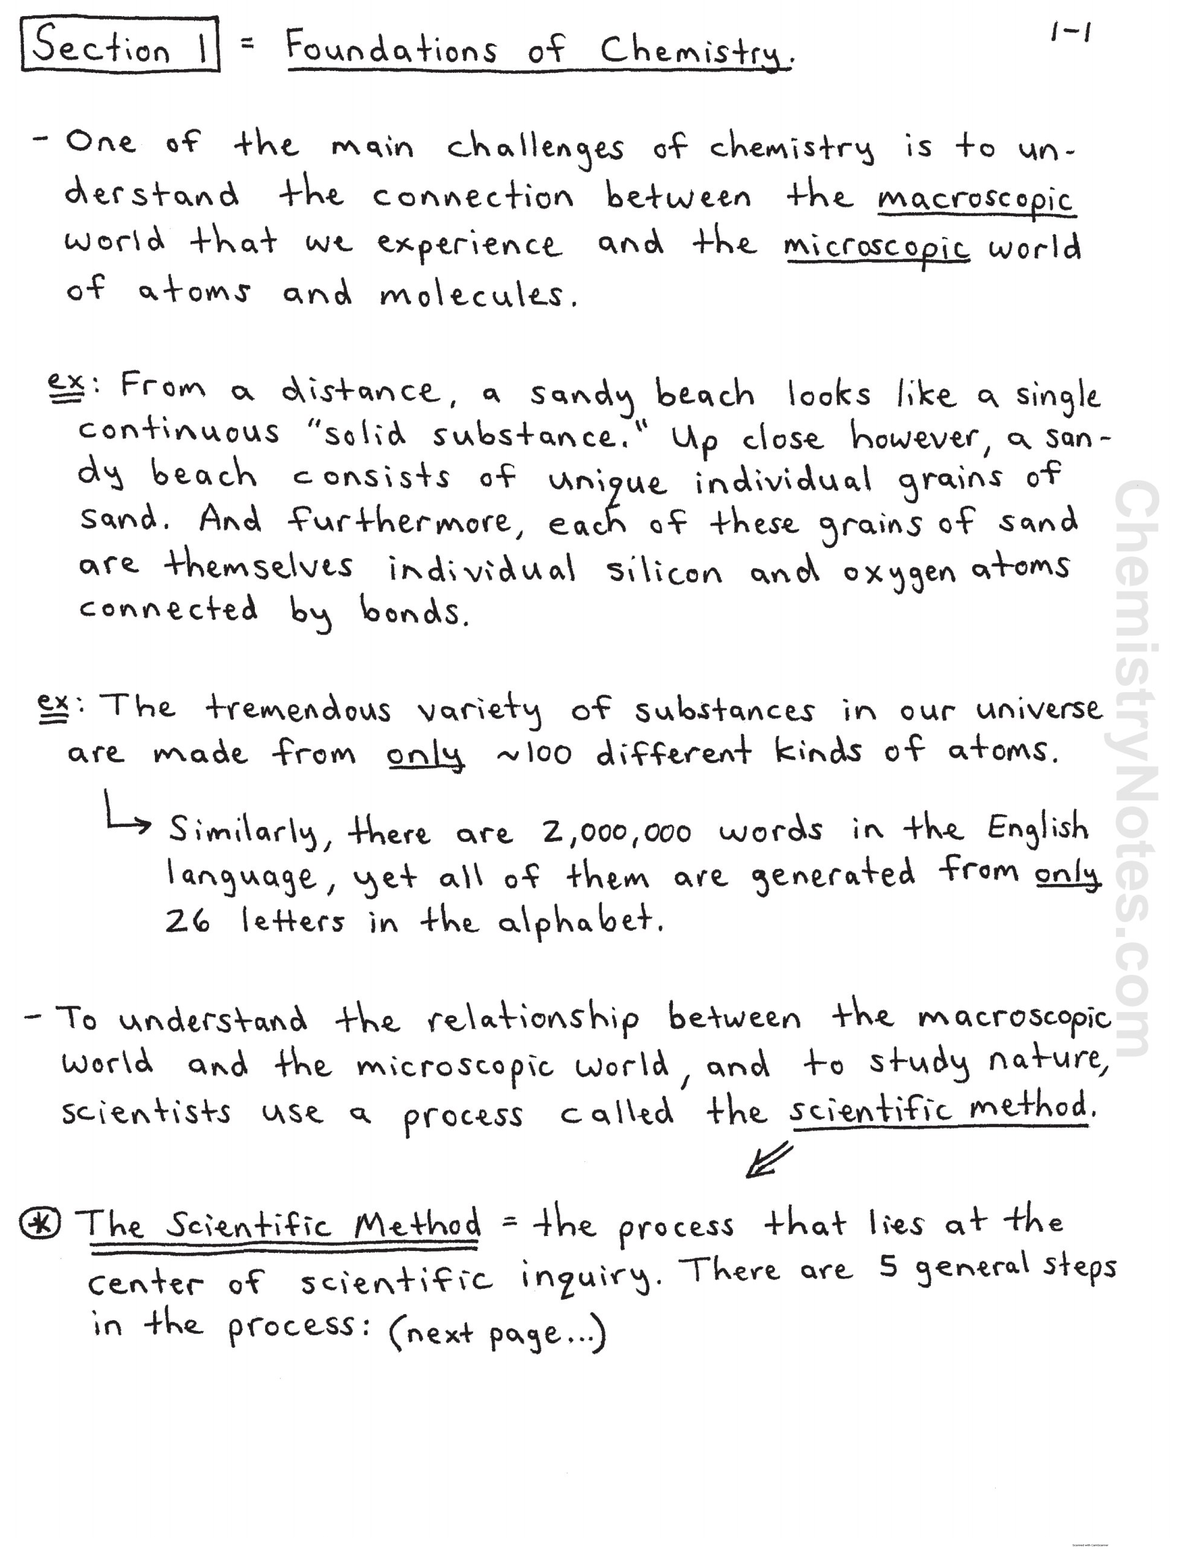 Section 1 = Foundations of Chemistry.
1-1
- One of the main challenges of chemistry is to un-
derstand the connection between the macroscopic
world that we experience and the microscopic world
of atoms and molecules.
ex: From a distance, a sandy beach looks like a single
continuous "solid substance." Up close however, a san-
dy beach consists of unique individual grains of
sand. And furthermore, each of these grains of sand
are themselves individual silicon and oxygen atoms
connected by bonds.
ex: The tremendous variety of substances in our universe
are made from only ~100 different kinds of atoms.
↳ Similarly, there are 2,000,000 words in the English
language, yet all of them are generated from only
26 letters in the alphabet.
- To understand the relationship between the macroscopic
world and the microscopic world, and to study nature,
scientists use a process called the scientific method.
⇙
* The Scientific Method = the process that lies at the
center of scientific inquiry. There are 5 general steps
in the process: (next page...)
ChemistryNotes.com